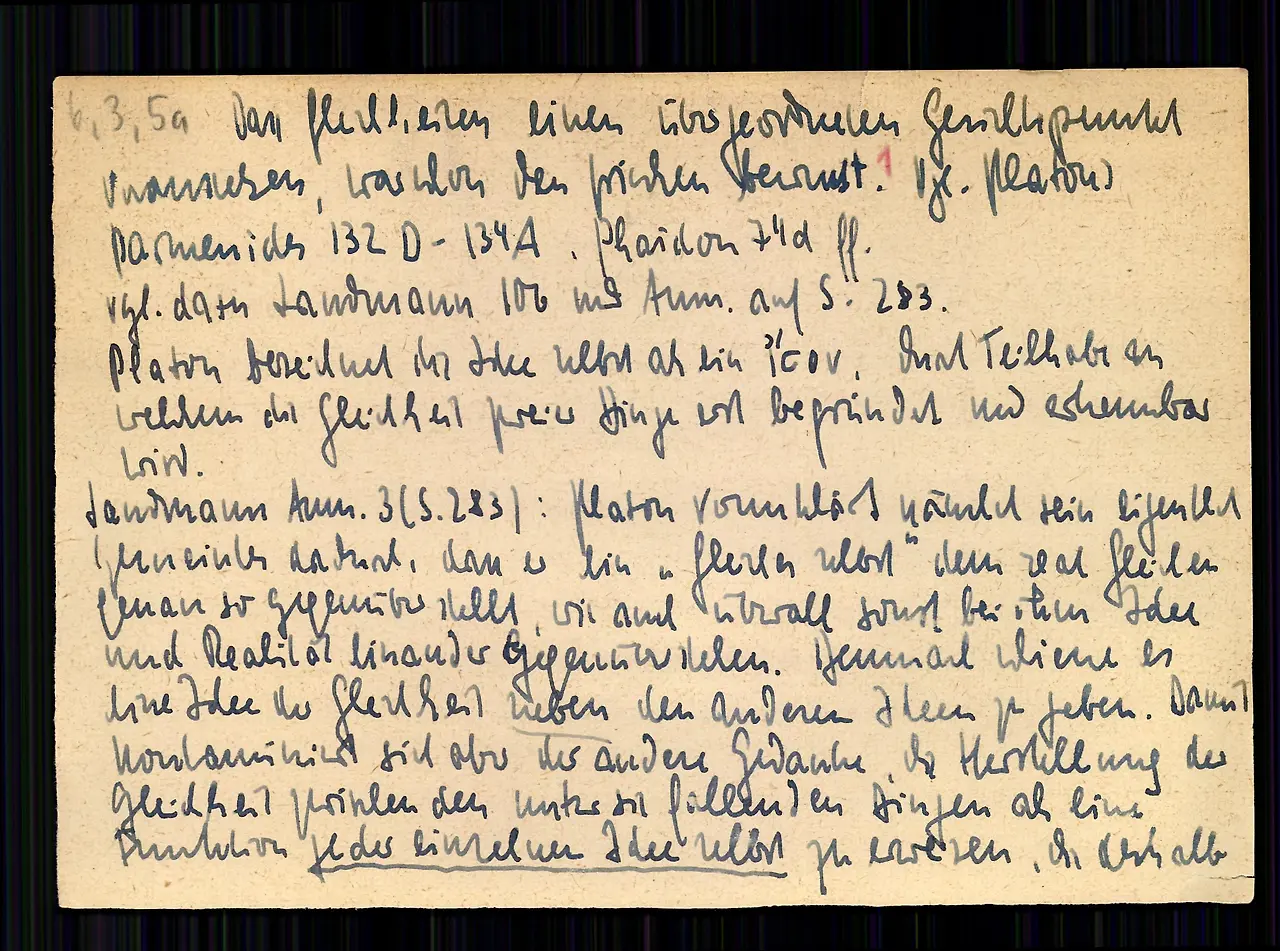 6,3,5a Dass Gleichheiten einen übergeordneten Gesichtspunkt
voraussetzen, war schon den Griechen bewusst.¹ Vgl. Platons
Parmenides 132 D - 134A, Phaidon 74d ff.
vgl. dazu Landmann 106 und Anm. auf S. 283.
Platon bezeichnet die Idee selbst als ein ἴσον, durch Teilhabe an
welchem die Gleichheit zweier Dinge erst begründet und erkennbar
wird.
Landmann Anm. 3 (S. 283): Platon verunklärt nämlich sein eigentlich
Gemeintes dadurch, dass er ein „Gleiches selbst" dem real Gleichen
genau so gegenüberstellt, wie auch überall sonst bei ihm Idee
und Realität einander gegenüberstehen. Demnach schiene es
eine Idee der Gleichheit neben den anderen Ideen zu geben. Damit
kontaminiert sich aber der andere Gedanke, die Herstellung der
Gleichheit zwischen den unter sie fallenden Dingen als eine
Funktion jeder einzelnen Idee selbst zu erweisen, die deshalb